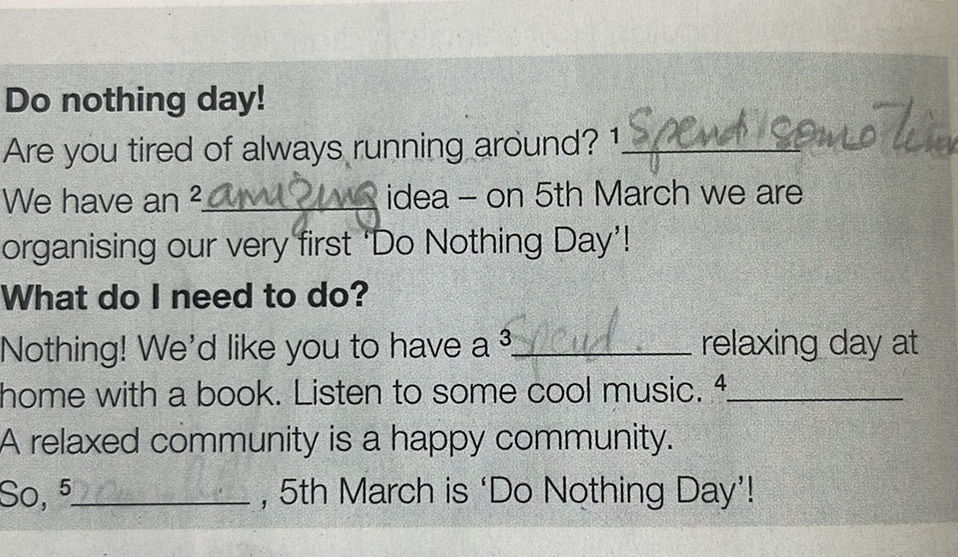 Do nothing day!
Are you tired of always running around? ¹ Spend some
We have an ² amizing idea – on 5th March we are
organising our very first ‘Do Nothing Day’!
What do I need to do?
Nothing! We’d like you to have a ³ Spend relaxing day at
home with a book. Listen to some cool music. ⁴
A relaxed community is a happy community.
So, ⁵ , 5th March is ‘Do Nothing Day’!